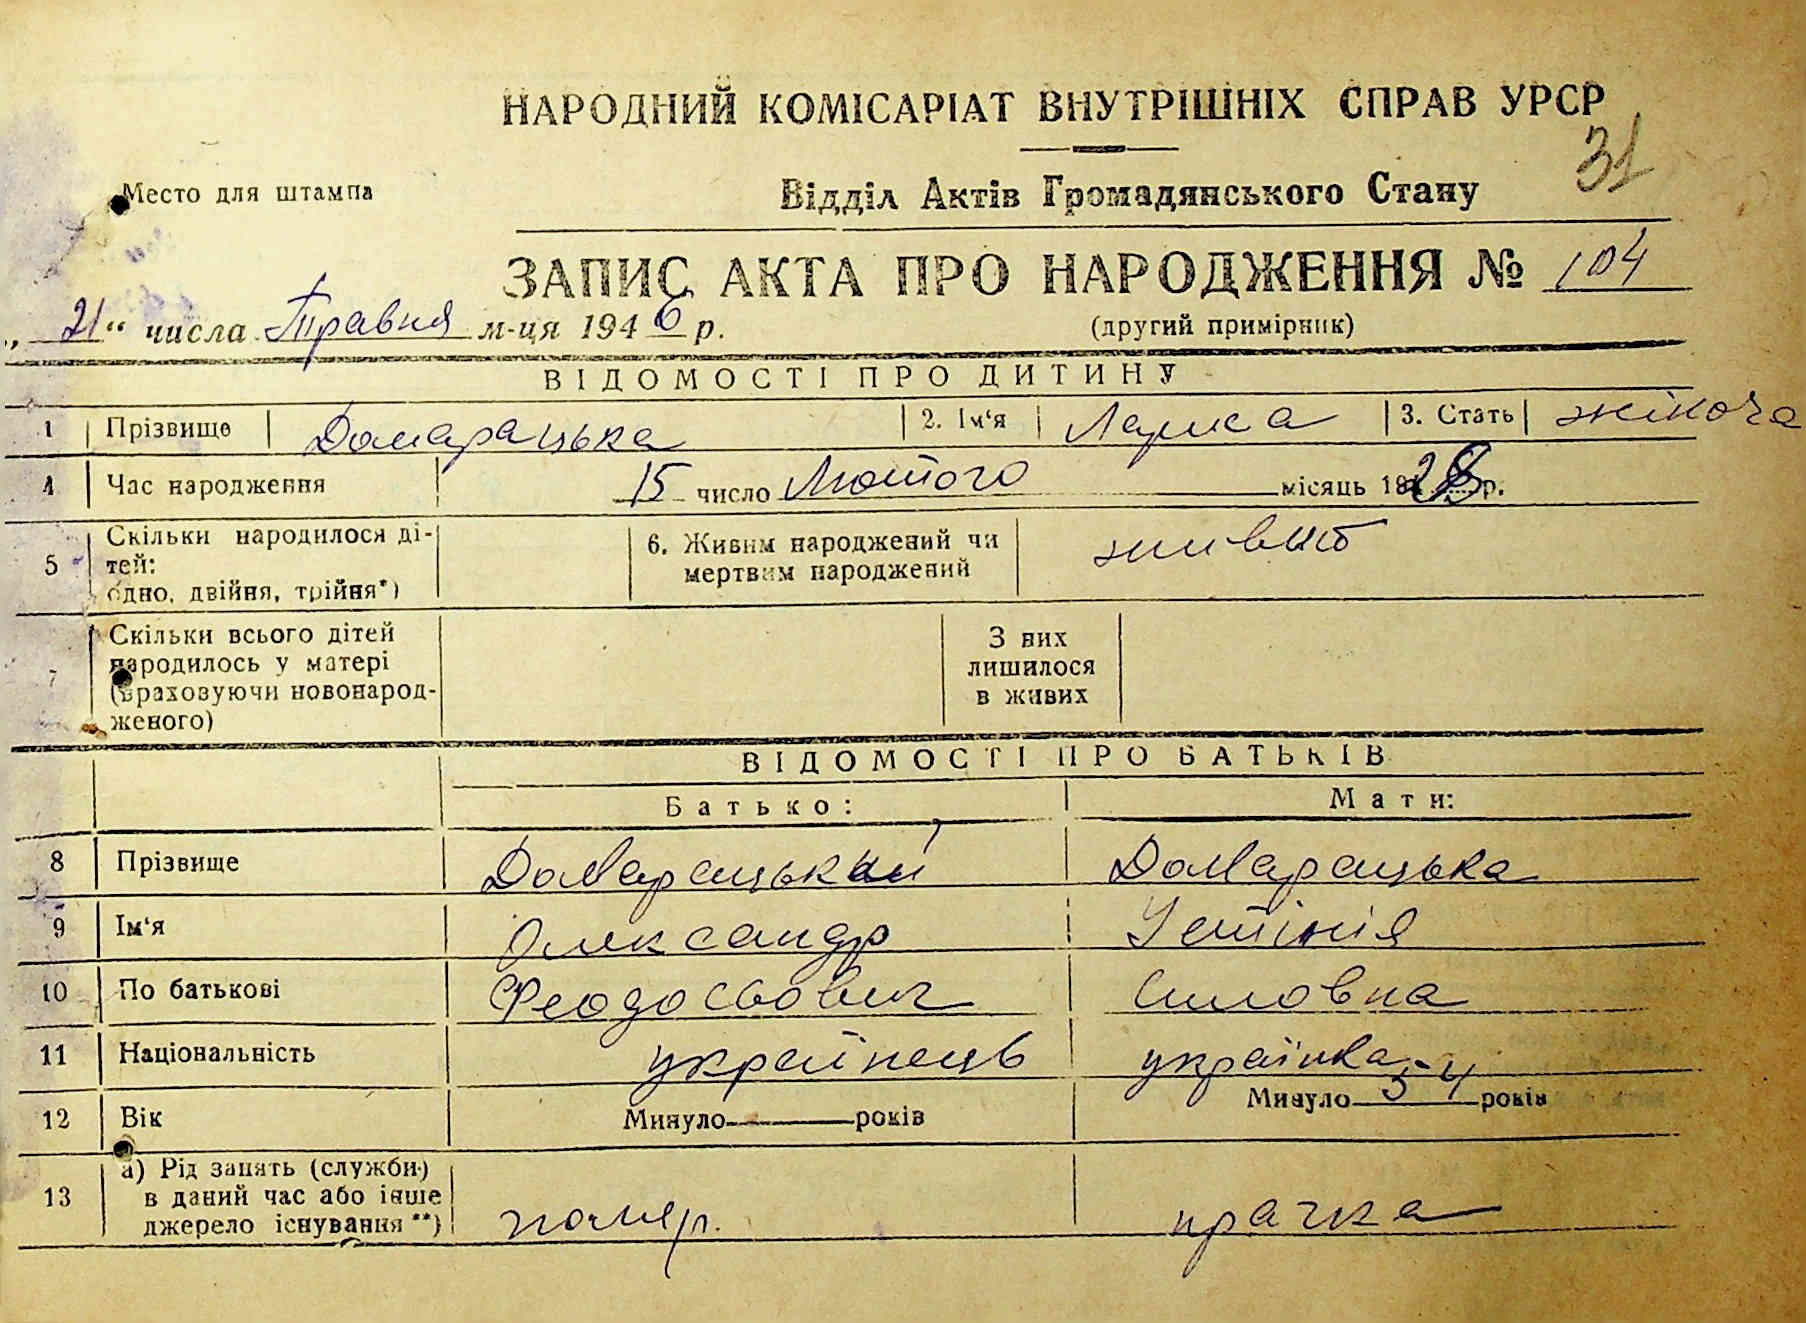 НАРОДНИЙ КОМІСАРІАТ ВНУТРІШНІХ СПРАВ УРСР
31
Место для штампа
Відділ Актів Громадянського Стану
ЗАПИС АКТА ПРО НАРОДЖЕННЯ № 104
„ 21 “ числа Травня м-ця 1946 р.
(другий примірник)
ВІДОМОСТІ ПРО ДИТИНУ
1 Прізвище Домарацька 2. Ім‘я Лариса 3. Стать жіноча
4 Час народження 15 число Лютого місяць 1928 р.
5 Скільки народилося ді-
тей:
одно, двійня, трійня*)
6. Живим народжений чи
мертвим народжений
живит
7 Скільки всього дітей
народилось у матері
(враховуючи новонарод-
женого)
З них
лишилося
в живих
ВІДОМОСТІ ПРО БАТЬКІВ
Батько: Мати:
8 Прізвище Домарацький Домарацька
9 Ім‘я Олександр Устінія
10 По батькові Феодосьович Силовна
11 Національність українець українка
12 Вік Минуло років Минуло 54 років
13 а) Рід занять (служби)
в даний час або інше
джерело існування **)
помер. прачка